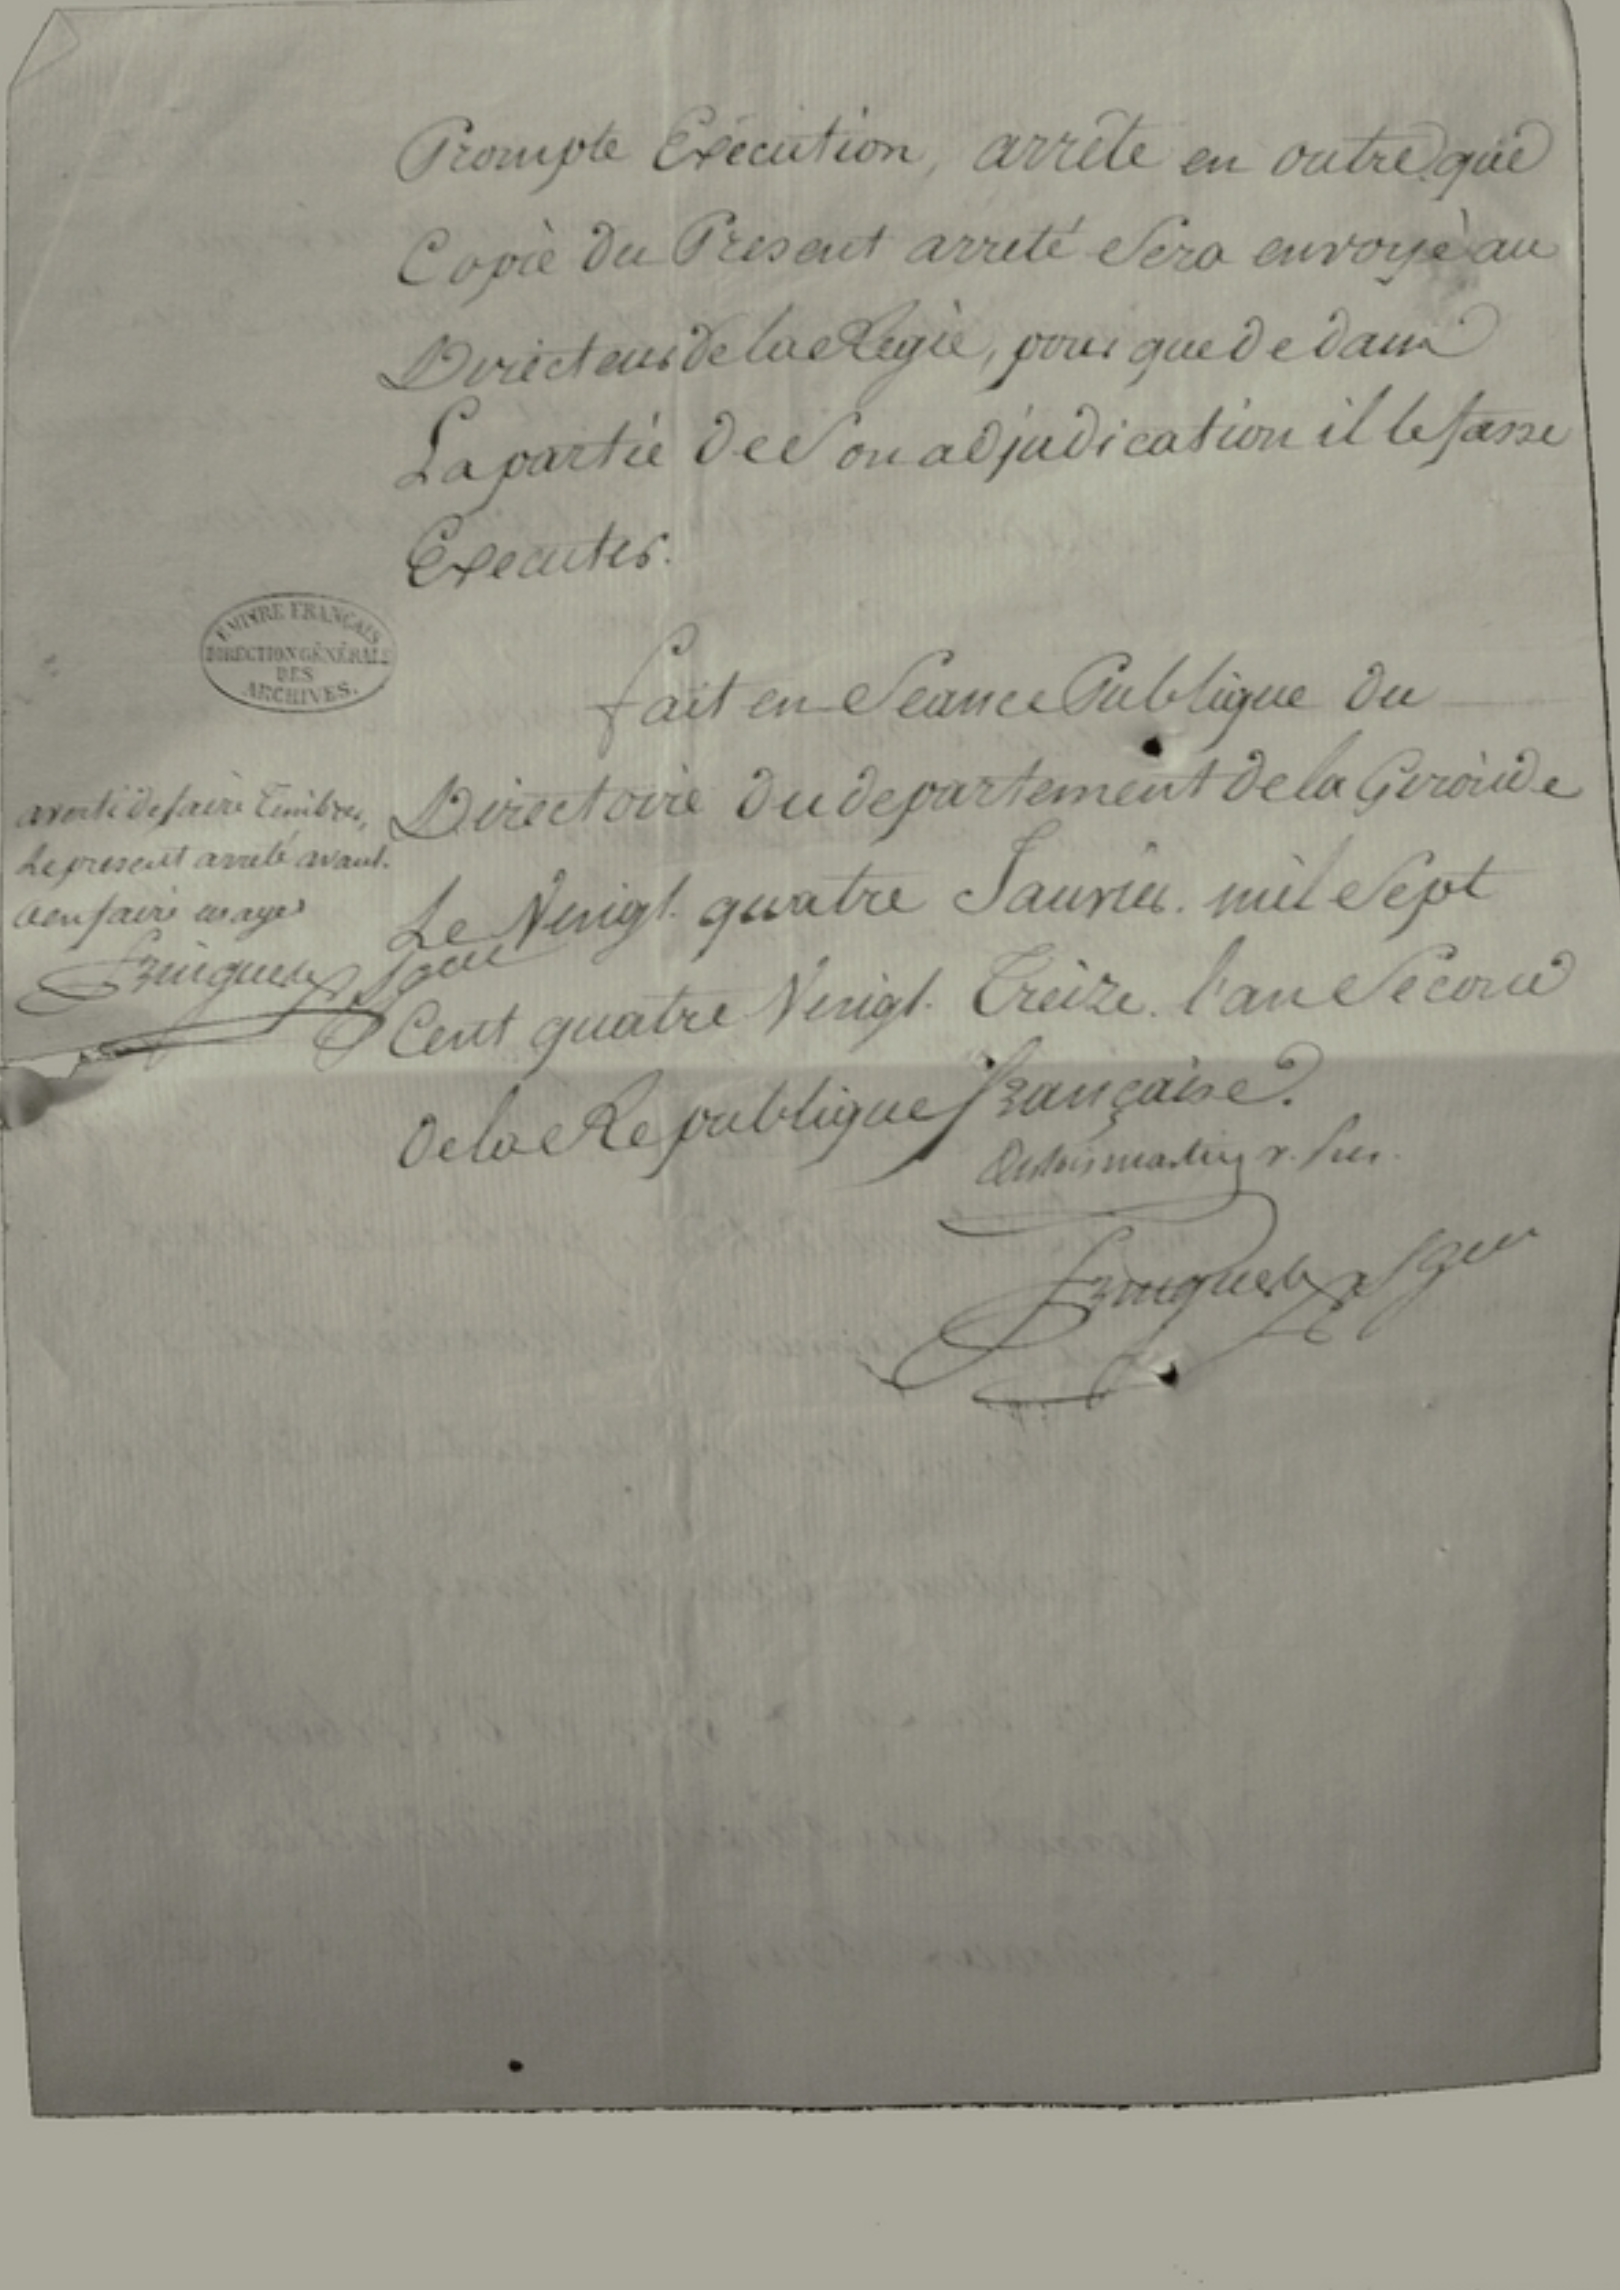 Prompte Exécution, arrête en outre que
Copie du Présent arreté Sera envoyé au
Directeur de la Regie, pour que de dans
La partie de Son adjudication il le fasse
Executer.
EMPIRE FRANÇAIS
DIRECTION GÉNÉRALE
DES
ARCHIVES.
fait en Séance Publique du
Directoire du departement de la Gironde
Le Vingt quatre Janvier mil Sept
Cent quatre Vingt Treize. l'an Second
de la Republique française.
averti de faire timbrer,
Le present arreté avant
d'en faire usage